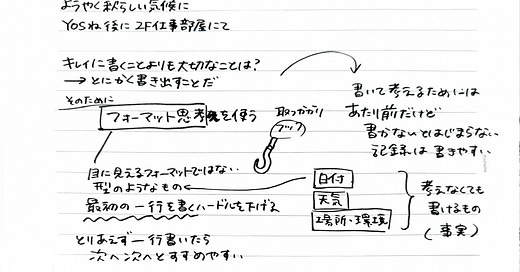 ようやく秋らしい気候に
YOSね後に 2F仕事部屋にて
キレイに書くことよりも大切なことは?
→とにかく書き出すことだ
そのために
フォーマット思考を使う
取っかかり
フック
目に見えるフォーマットではない
型のようなもの
最初の一行を書くハードルを下げる
とりあえず一行書いたら
次へ次へとすすめやすい
書いて考えるためには
あたり前だけど
書かないとはじまらない
記録は書きやすい
日付
天気
場所・環境
考えなくても
書けるもの
(事実)